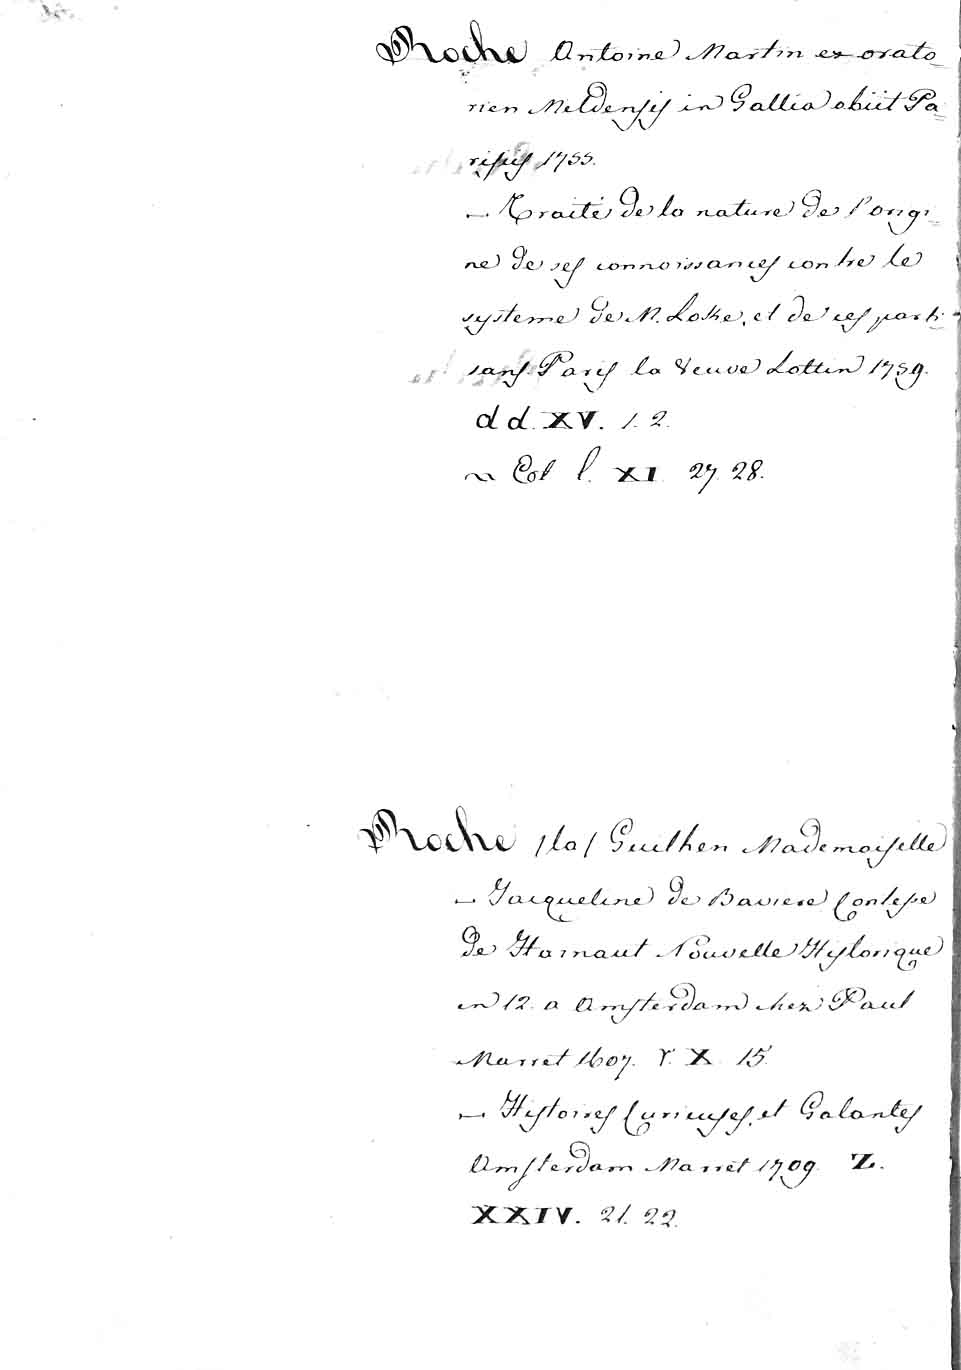 Roche Antoine Martin ex orato=
rien Meldensis in Gallia obiit Pa=
risiis 1755.
— Traité de la nature de l'origi=
ne de ses connoissances contre le
systeme de M. Loke, et de ces parti=
sans Paris la Veuve Lottin 1759.
d d. XV. 1. 2.
~ Col l. XI. 27. 28.
Roche /la/ Guilhen Mademoiselle
— Jacqueline de Baviere Contesse
de Hainaut Nouvelle Historique
in 12. a Amsterdam chez Paul
Marret 1607. r. X. 15.
— Histoires Curieuses, et Galantes
Amsterdam Marret 1709. Z.
XXIV. 21. 22.